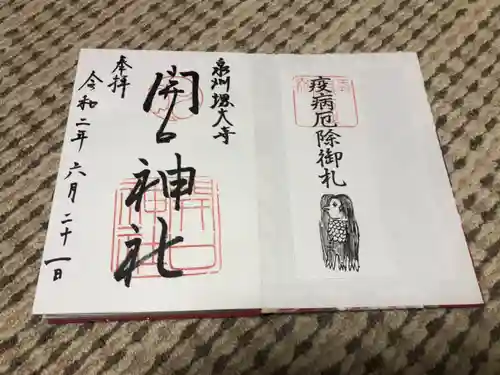 疫病厄除御札
泉州堺大寺
開口神社
奉拝
令和二年六月二十一日
開口神社